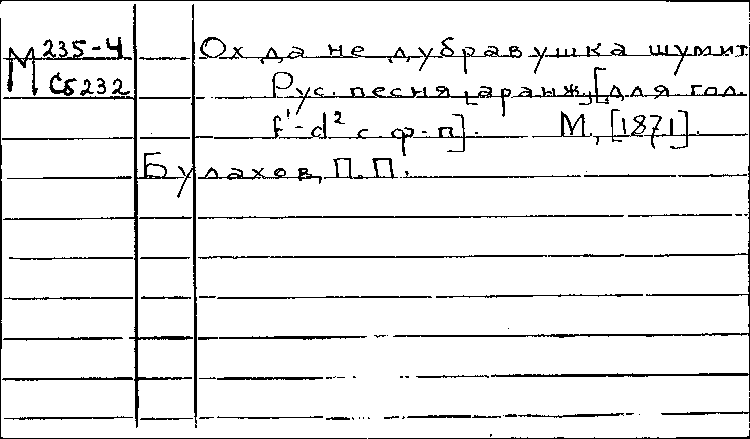 М 235-4
Сб 232
Ох да не дубравушка шумит
Рус. песня, аранж. [для гол.
f¹-d² с ф-п]. М., [1871].
Булахов, П.П.